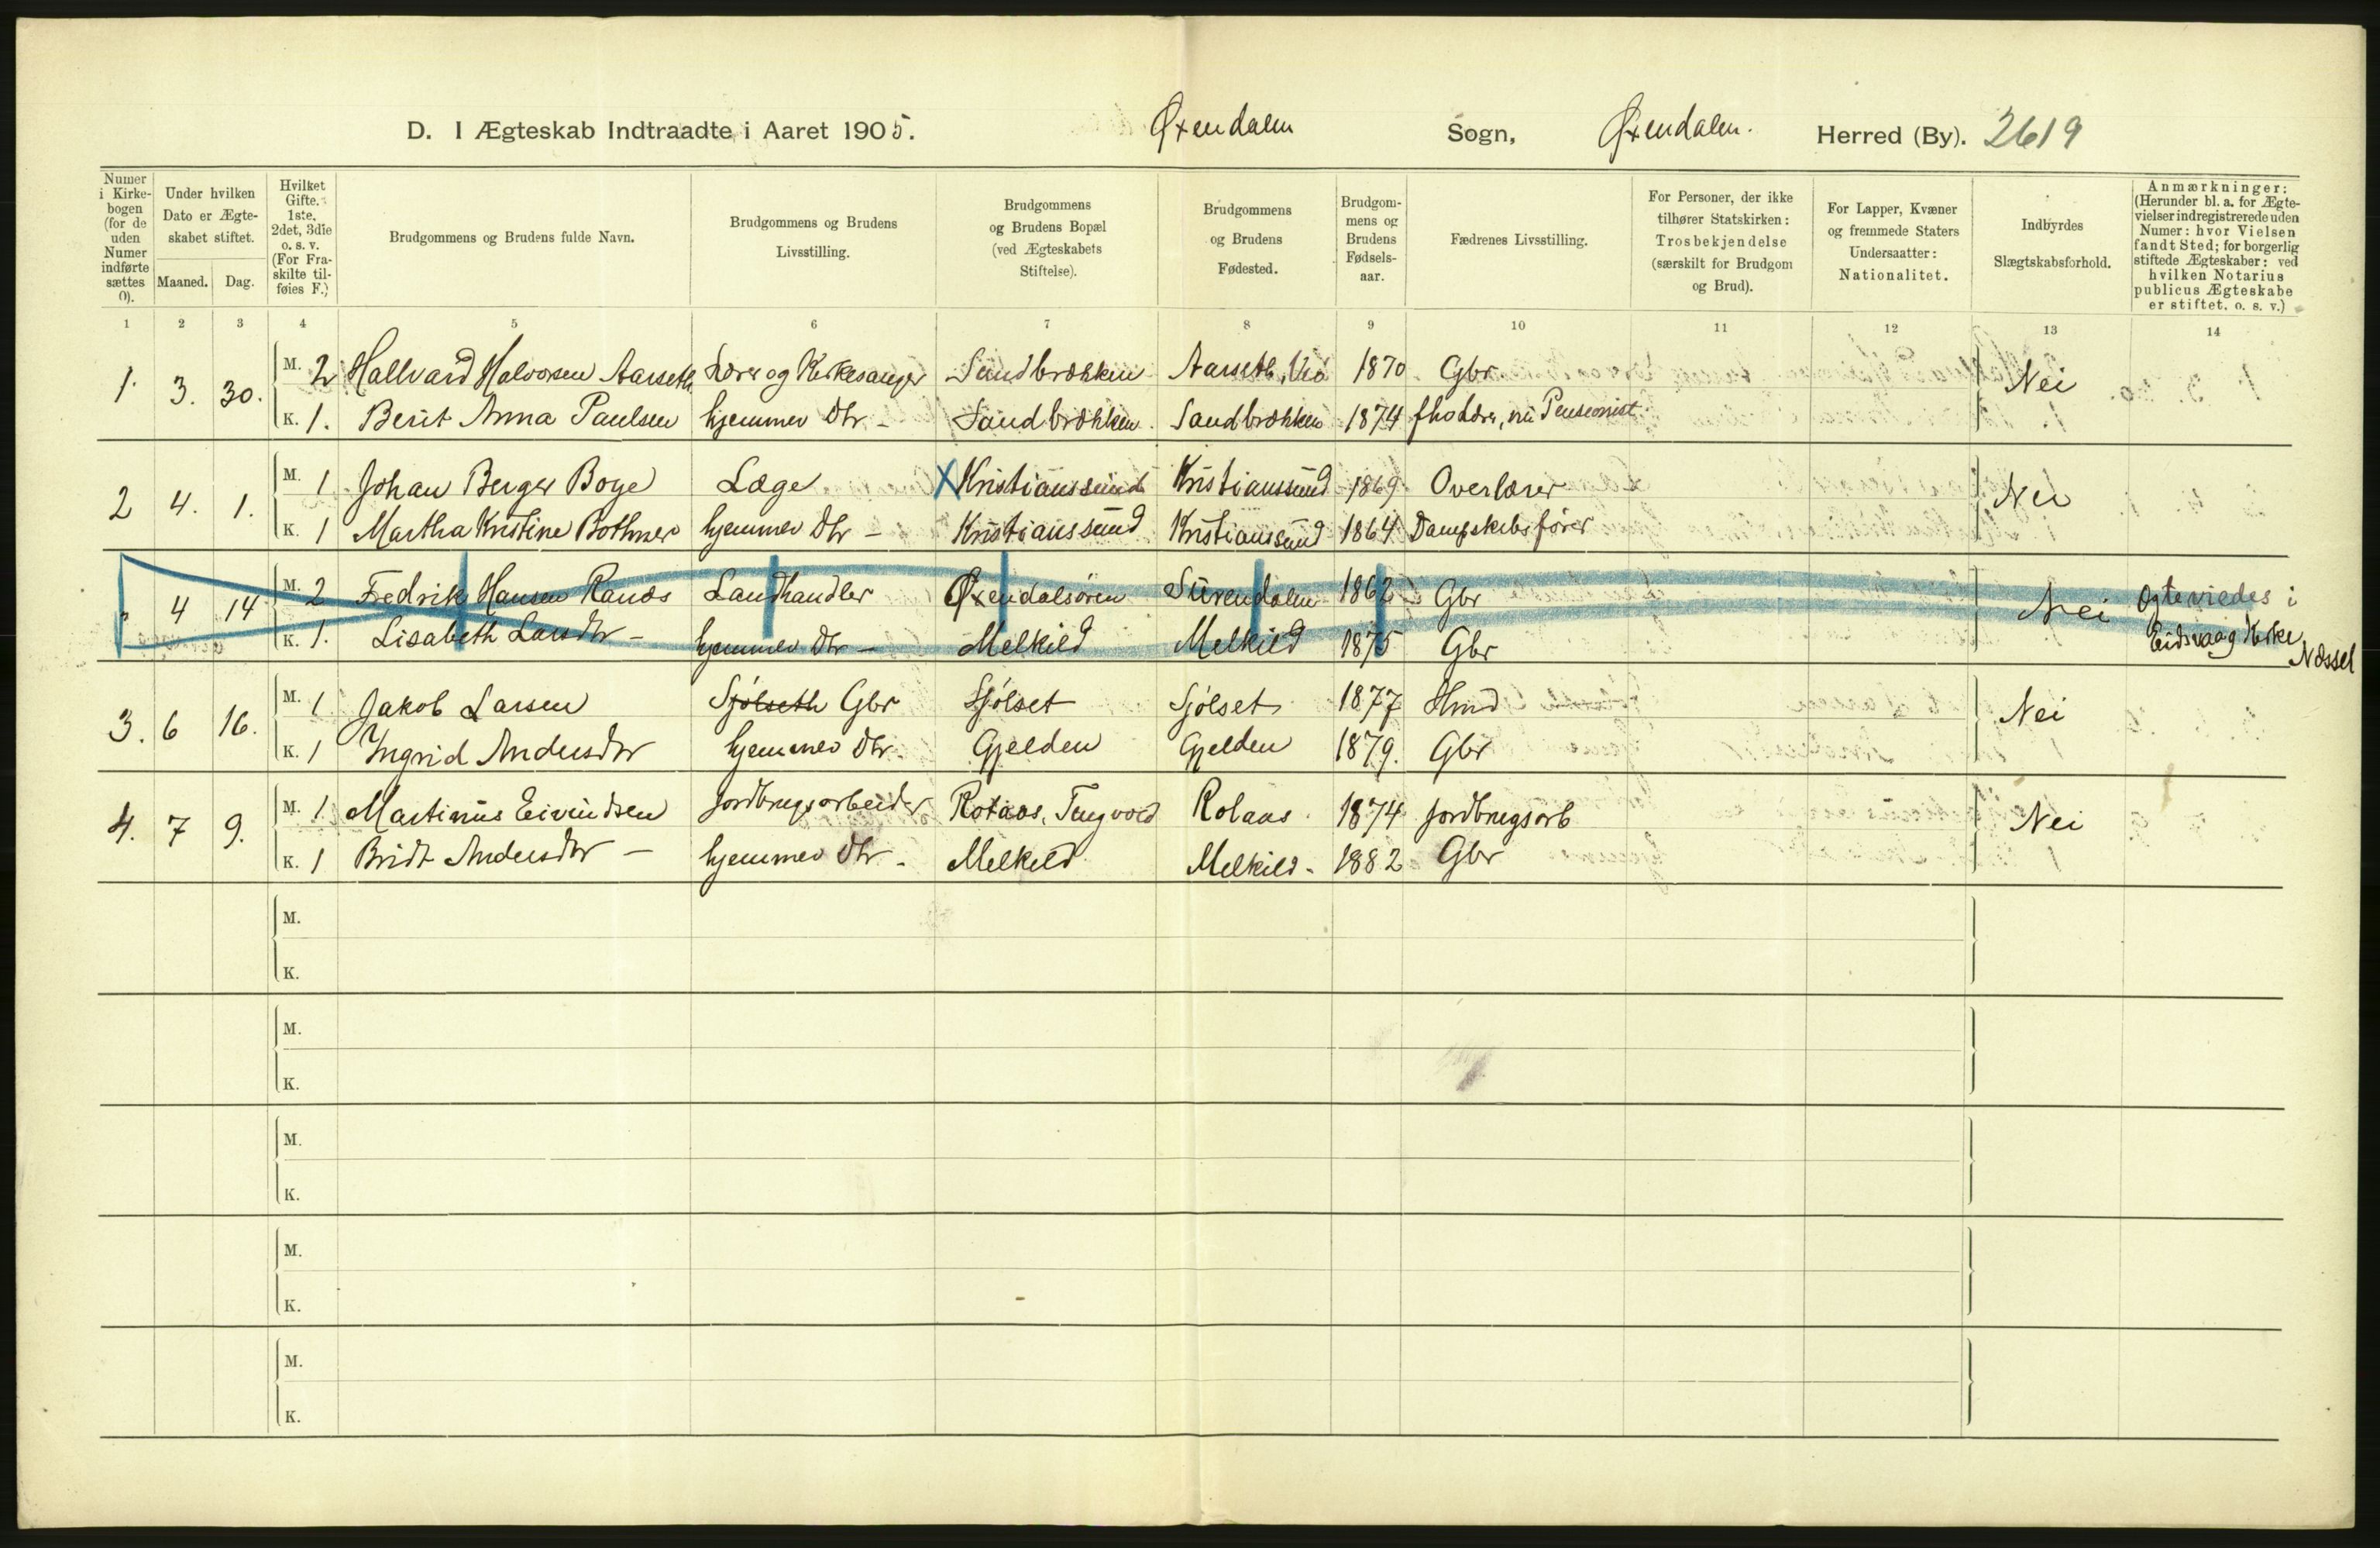 D. I Ægteskab Indtraadte i Aaret 1905. Øxendalen Sogn, Øxendalen. Herred (By). 2619
Numer i Kirkebogen (for de uden Numer indførte sættes 0). Under hvilken Dato er Ægteskabet stiftet. Maaned. Dag. Hvilket Gifte. 1ste, 2det, 3die o. s. v. (For Fraskilte tilføies F.) Brudgommens og Brudens fulde Navn. Brudgommens og Brudens Livsstilling. Brudgommens og Brudens Bopæl (ved Ægteskabets Stiftelse). Brudgommens og Brudens Fødested. Brudgommens og Brudens Fødselsaar. Fædrenes Livsstilling. For Personer, der ikke tilhører Statskirken: Trosbekjendelse (særskilt for Brudgom og Brud). For Lapper, Kvæner og fremmede Staters Undersaatter: Nationalitet. Indbyrdes Slægtskabsforhold. Anmærkninger: (Herunder bl. a. for Ægtevielser indregistrerede uden Numer: hvor Vielsen fandt Sted; for borgerlig stiftede Ægteskaber: ved hvilken Notarius publicus Ægteskabe er stiftet, o. s. v.)
1 2 3 4 5 6 7 8 9 10 11 12 13 14
1. 3. 30. M. 2 Hallvard Halvorsen Aarseth Lærer og Kirkesanger Sandbrækken Aarseth, 1870 Gbr Nei
K. 1. Berit Anna Paulsen hjemmev Dtr - Sandbrækken Sandbrækken 1874 nu Pensionist
2 4. 1. M. 1 Johan Berger Boye Læge X Kristianssund Kristianssund 1869 Overlærer Nei
K. 1 Martha Kristine Bothner hjemmev Dtr - Kristianssund Kristianssund 1864 Dampskibsfører
4 14 M. 2 Fredrik Hansen Ranæs Landhandler Øxendalsøren Surendalen 1862 Gbr Nei Ogteviedes i
K. 1. Lisabeth Larsdtr - hjemmev Dtr - Melkild Melkild 1875 Gbr Eidsvaag Kirke
Næsset
3. 6 16. M. 1 Jakob Larsen Sjölseth Gbr Sjölset Sjölset 1877 Hmd Nei
K. 1 Ingrid Andersdtr hjemmev Dtr - Gjelden Gjelden 1879. Gbr
4. 7 9. M. 1. Martinus Eivindsen Jordbrugsarbeider Rotaas, Tingvold Rotaas 1874 Jordbrugsarb Nei
K. 1 Bridt Andersdtr - hjemmev Dtr - Melkild Melkild - 1882 Gbr
M.
K.
M.
K.
M.
K.
M.
K.
M.
K.